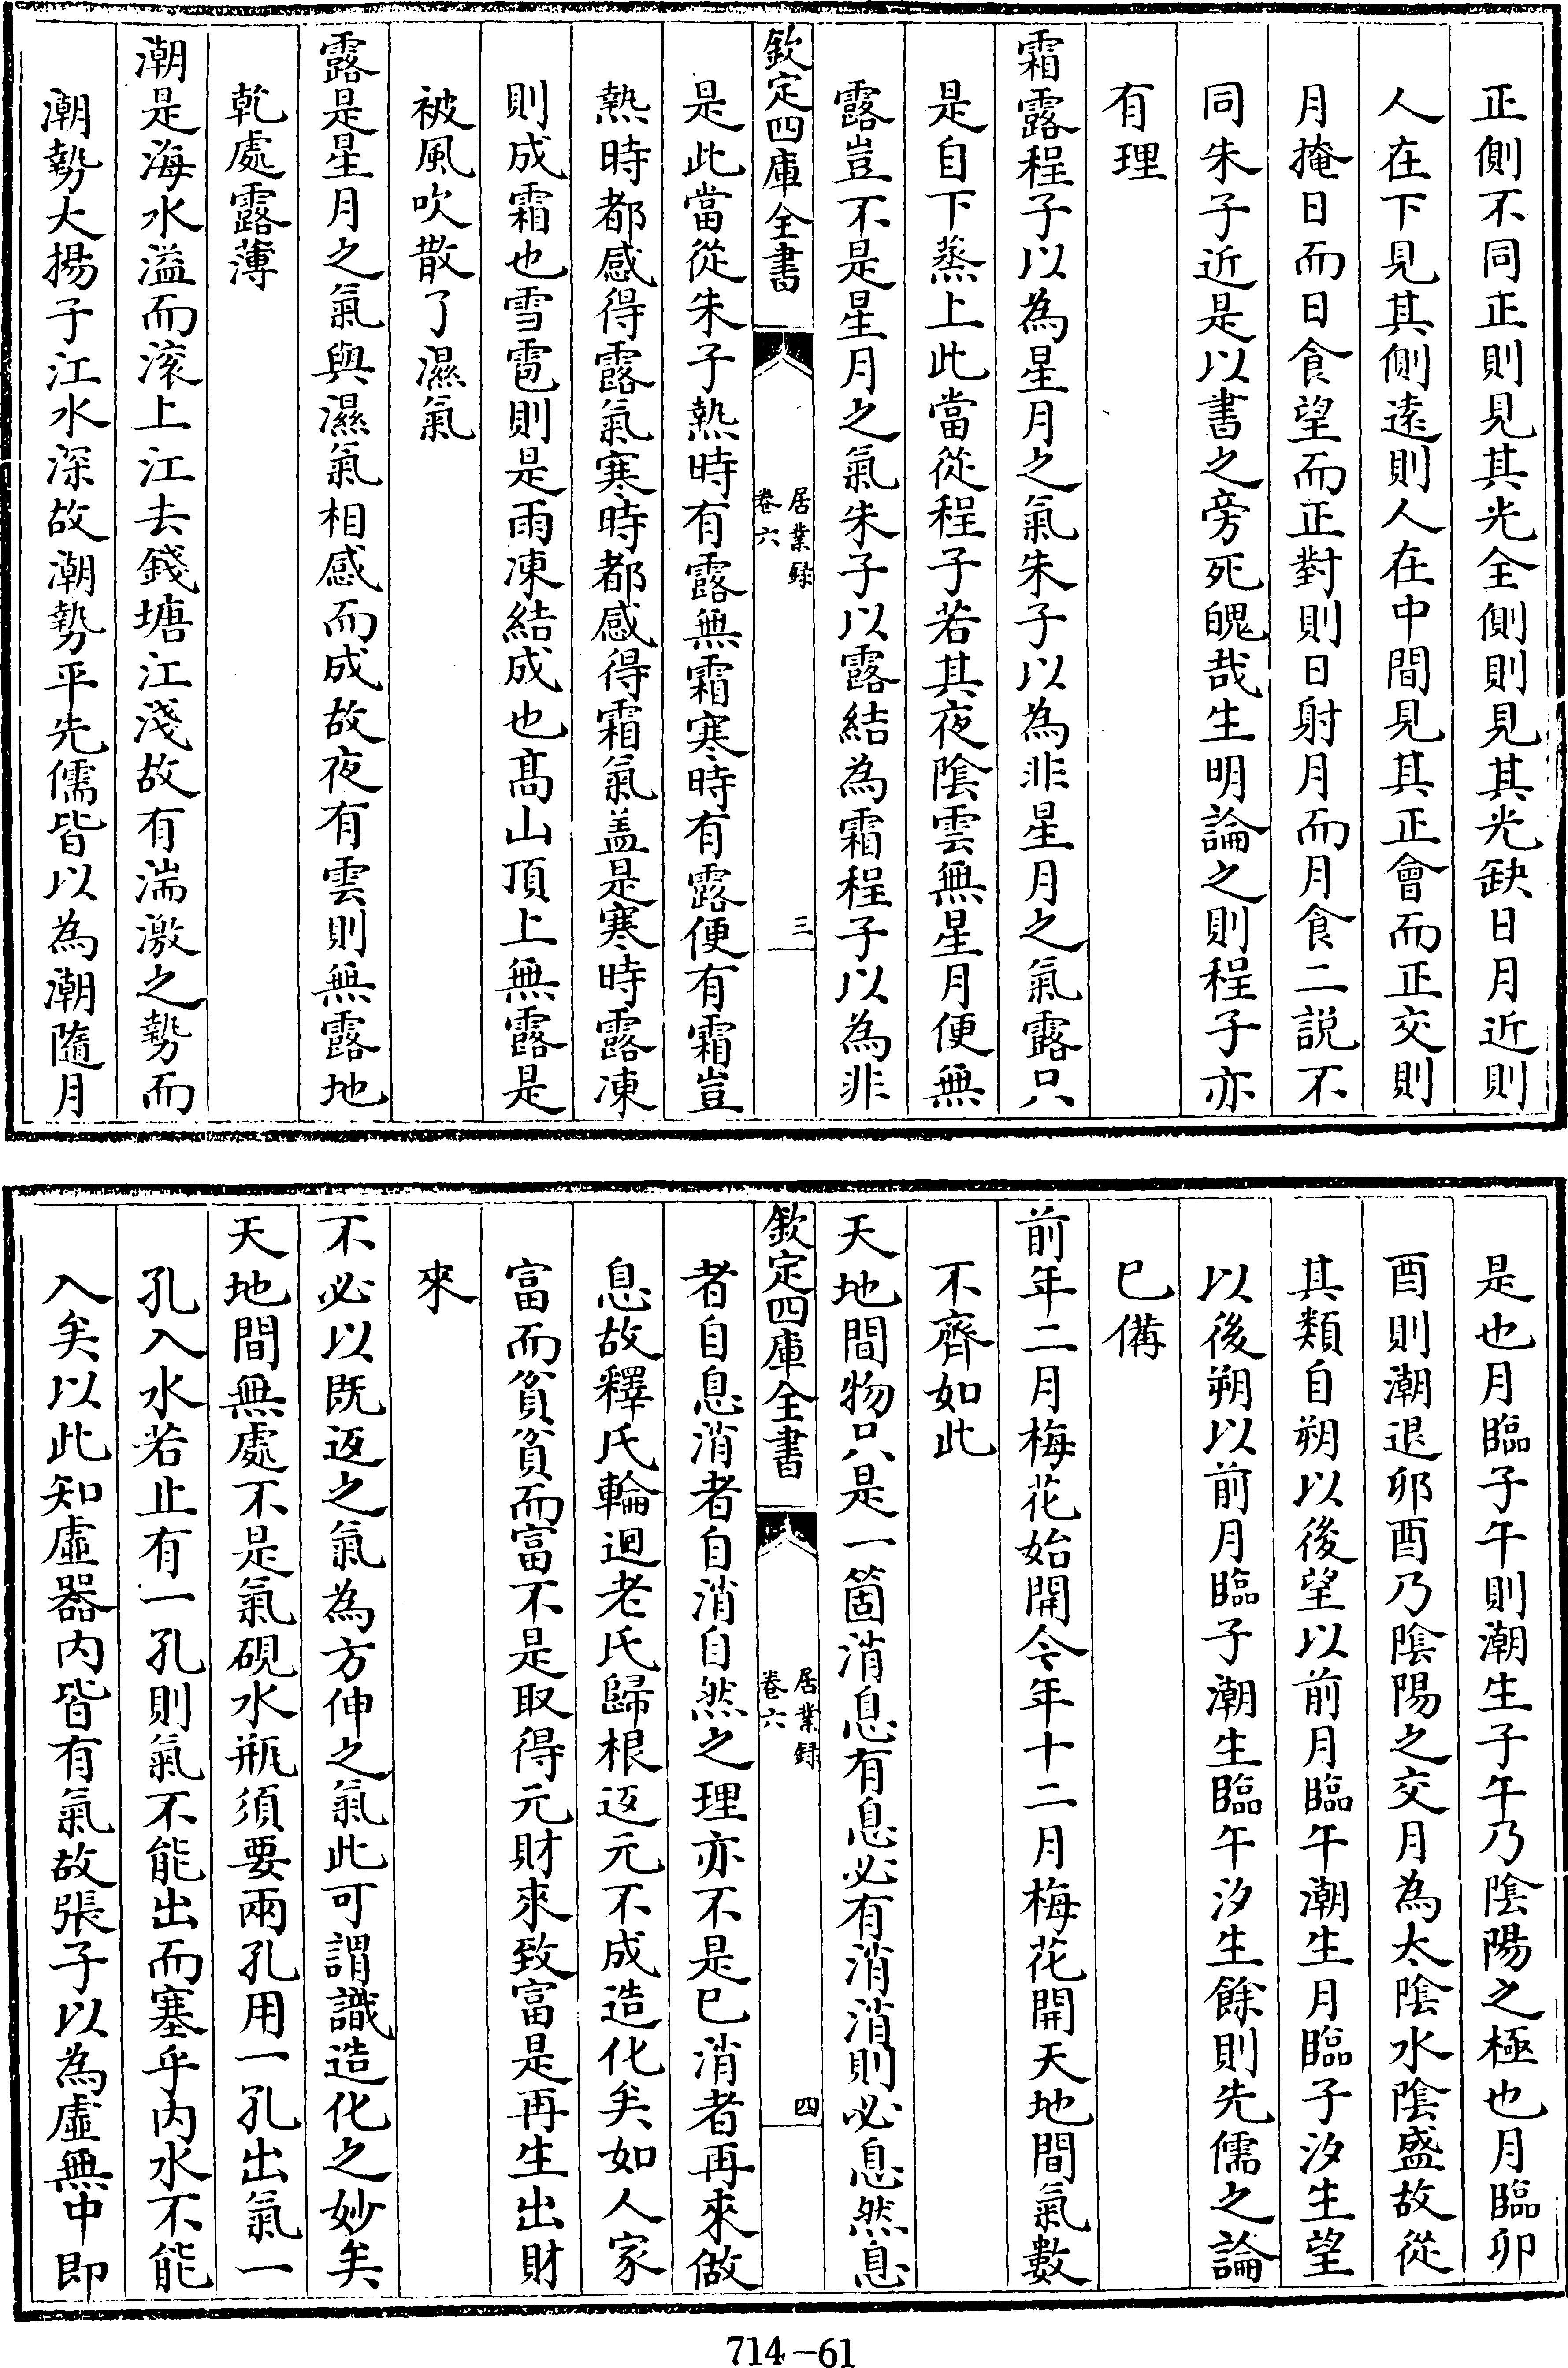 正側不同正則見其光全側則見其光缺日月近則
人在下見其側逺則人在中間見其正會而正交則
月掩日而日食望而正對則日射月而月食二説不
同朱子近是以書之旁死魄哉生明論之則程子亦
有理
霜露程子以為星月之氣朱子以為非星月之氣露只
是自下蒸上此當從程子若其夜陰雲無星月便無
露豈不是星月之氣朱子以露結為霜程子以為非
欽定四庫全書
居業録
卷六
三
是此當從朱子熱時有露無霜寒時有露便有霜豈
熱時都感得露氣寒時都感得霜氣盖是寒時露凍
則成霜也雪雹則是雨凍結成也髙山頂上無露是
被風吹散了濕氣
露是星月之氣與濕氣相感而成故夜有雲則無露地
乾處露薄
潮是海水溢而滚上江去錢塘江淺故有湍激之勢而
潮勢大揚子江水深故潮勢平先儒皆以為潮隨月
是也月臨子午則潮生子午乃陰陽之極也月臨卯
酉則潮退卯酉乃陰陽之交月為太陰水陰盛故從
其類自朔以後望以前月臨午潮生月臨子汐生望
以後朔以前月臨子潮生臨午汐生餘則先儒之論
已備
前年二月梅花始開今年十二月梅花開天地間氣數
不齊如此
天地間物只是一箇消息有息必有消消則必息然息
欽定四庫全書
居業録
卷六
四
者自息消者自消自然之理亦不是已消者再來做
息故釋氏輪迴老氏歸根返元不成造化矣如人家
富而貧貧而富不是取得元財來致富是再生出財
來
不必以既返之氣為方伸之氣此可謂識造化之妙矣
天地間無處不是氣硯水瓶須要兩孔用一孔出氣一
孔入水若止有一孔則氣不能出而塞乎内水不能
入矣以此知虚器内皆有氣故張子以為虚無中即
714-61